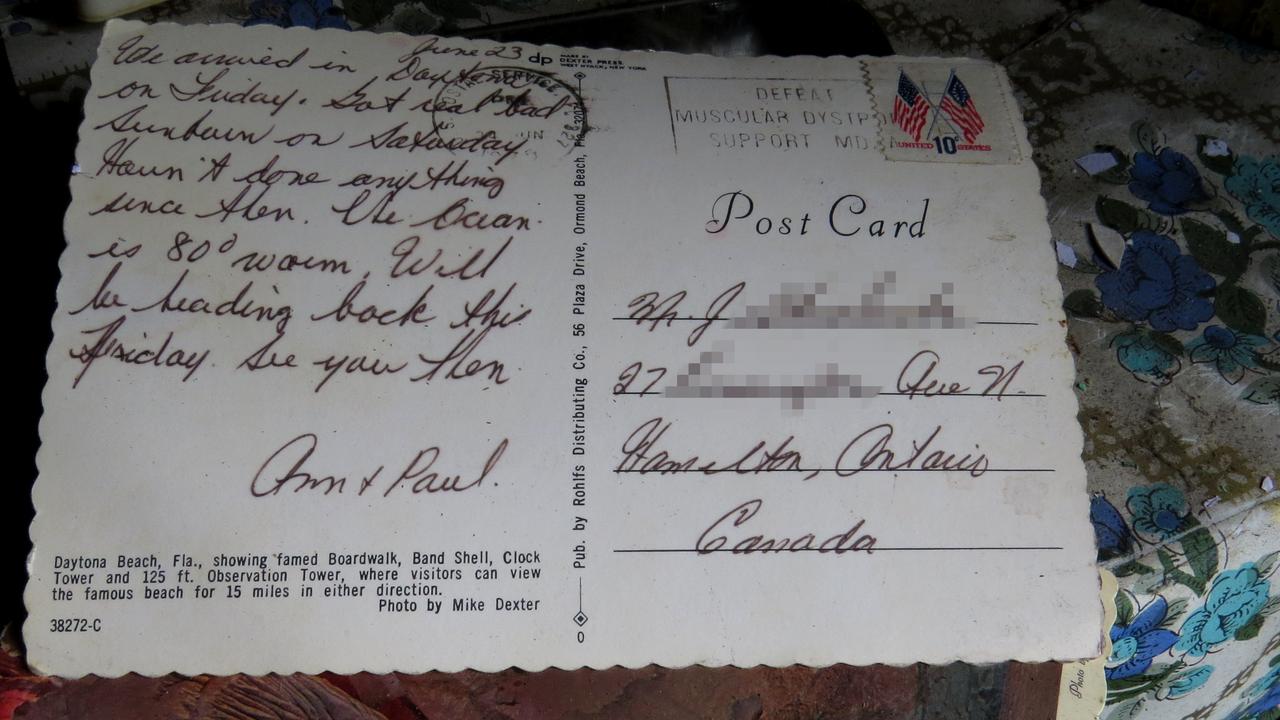 June 23
We arrived in Daytona
on Friday. Got real bad
sunburn on Saturday
Havn't done anything
since then. The Ocean
is 80° warm. Will
be heading back this
Friday. See you then.
Ann & Paul.
Daytona Beach, Fla., showing famed Boardwalk, Band Shell, Clock
Tower and 125 ft. Observation Tower, where visitors can view
the famous beach for 15 miles in either direction.
Photo by Mike Dexter
38272-C
dp
MADE BY
DEXTER PRESS
WEST NYACK, NEW YORK
Pub. by Rohlfs Distributing Co., 56 Plaza Drive, Ormond Beach, Fla. 32074
SERVICE
DEFEAT
MUSCULAR DYSTRO
SUPPORT MD
UNITED 10c STATES
Post Card
Mr. J
27 Ave N.
Hamilton, Ontario
Canada
Photo